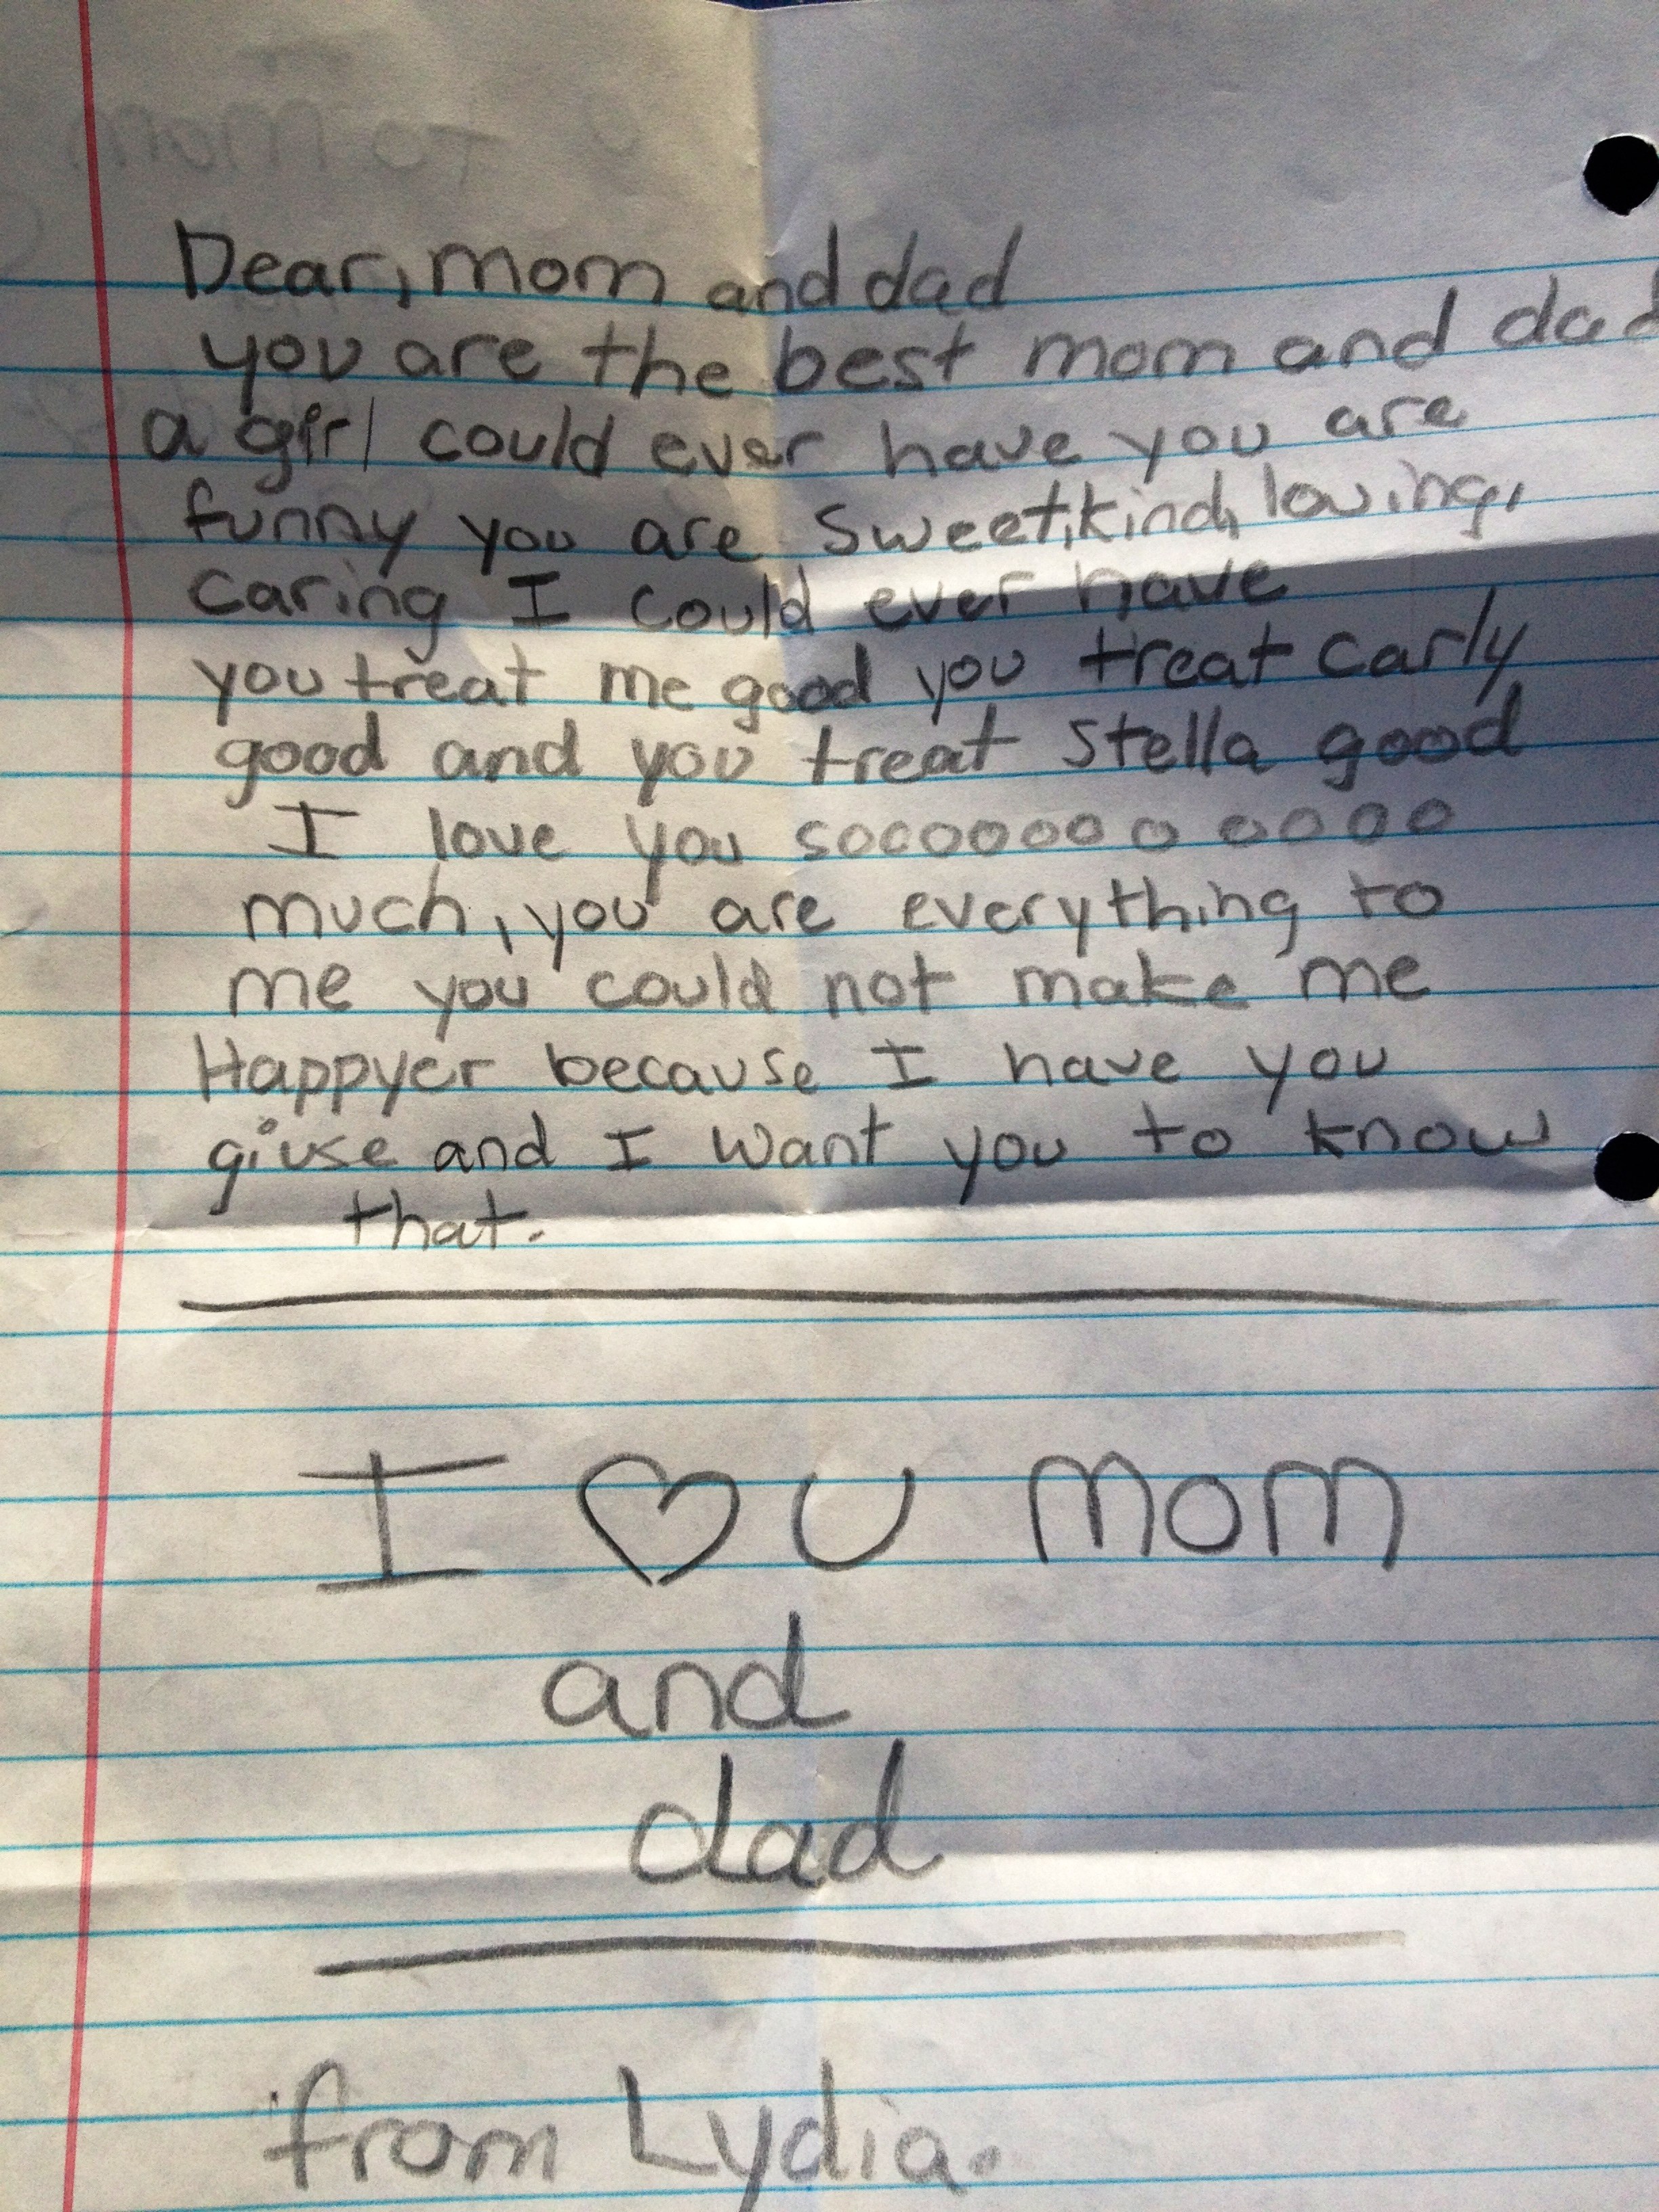 To mom
Dear, mom and dad
you are the best mom and dad
a girl could ever have you are
funny you are sweet, kind, loving,
caring I could ever have
you treat me good you treat carly
good and you treat stella good
I love you soooooooooooo
much, you are everything to
me you could not make me
Happyer because I have you
giuse and I want you to know
that.
I ♡ U mom
and
dad
from Lydia.